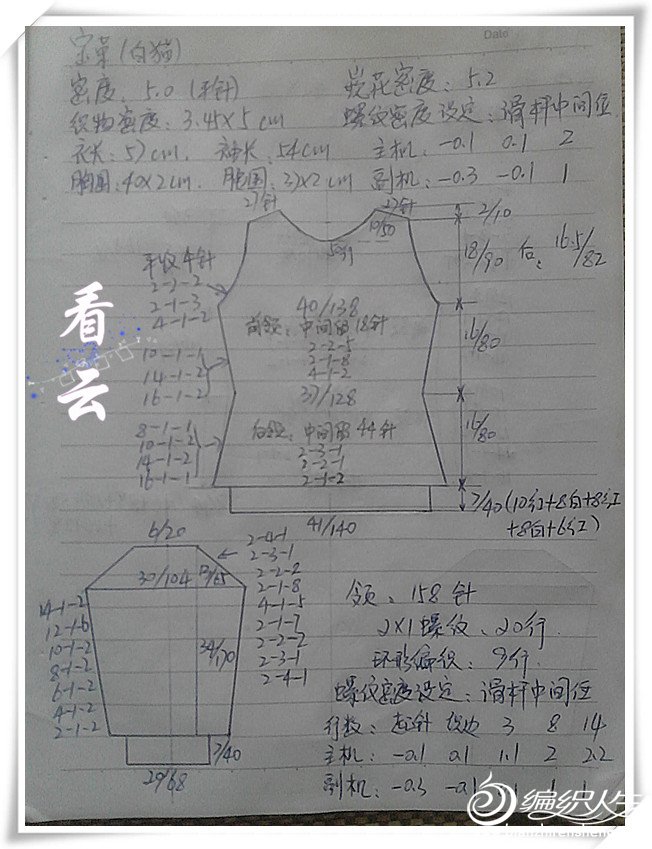 宝菜(白猫)
Date
密度:5.0(平针)
嵌花密度:5.2
织物密度:3.45×5cm
螺纹密度设定:滑杆中间位
衣长:57cm. 袖长:54cm
主机:-0.1 0.1 2
胸围:40×2cm. 腰围:37×2cm
副机:-0.3 -0.1 1
27针
27针
2/10
10/50
50针
18/90
后:16.5/82
平收4针
2-2-2
2-1-3
4-1-2
40/138
前领:中间留18针
2-2-5
2-1-8
4-1-2
10-1-1
14-1-2
16-1-2
16/80
37/128
后领:中间留44针
2-3-1
2-2-1
2-1-2
8-1-1
10-1-2
14-1-2
16-1-1
16/80
7/40(10红+8白+8红
+8白+6红)
41/140
看云
6/20
2-4-1
2-3-1
2-2-2
2-1-8
4-1-5
2-1-7
2-2-2
2-3-1
2-4-1
30/104
13/65
14-1-2
12-1-6
10-1-2
8-1-2
6-1-2
4-1-2
2-1-2
34/170
7/40
20/68
领:158针
2×1螺纹、20行.
环形编织:9行.
螺纹密度设定:滑杆中间位
行数:起针 放边 3 8 14
主机:-0.1 0.1 1.1 2 2.2
副机:-0.3 -0.1 1
编织人生